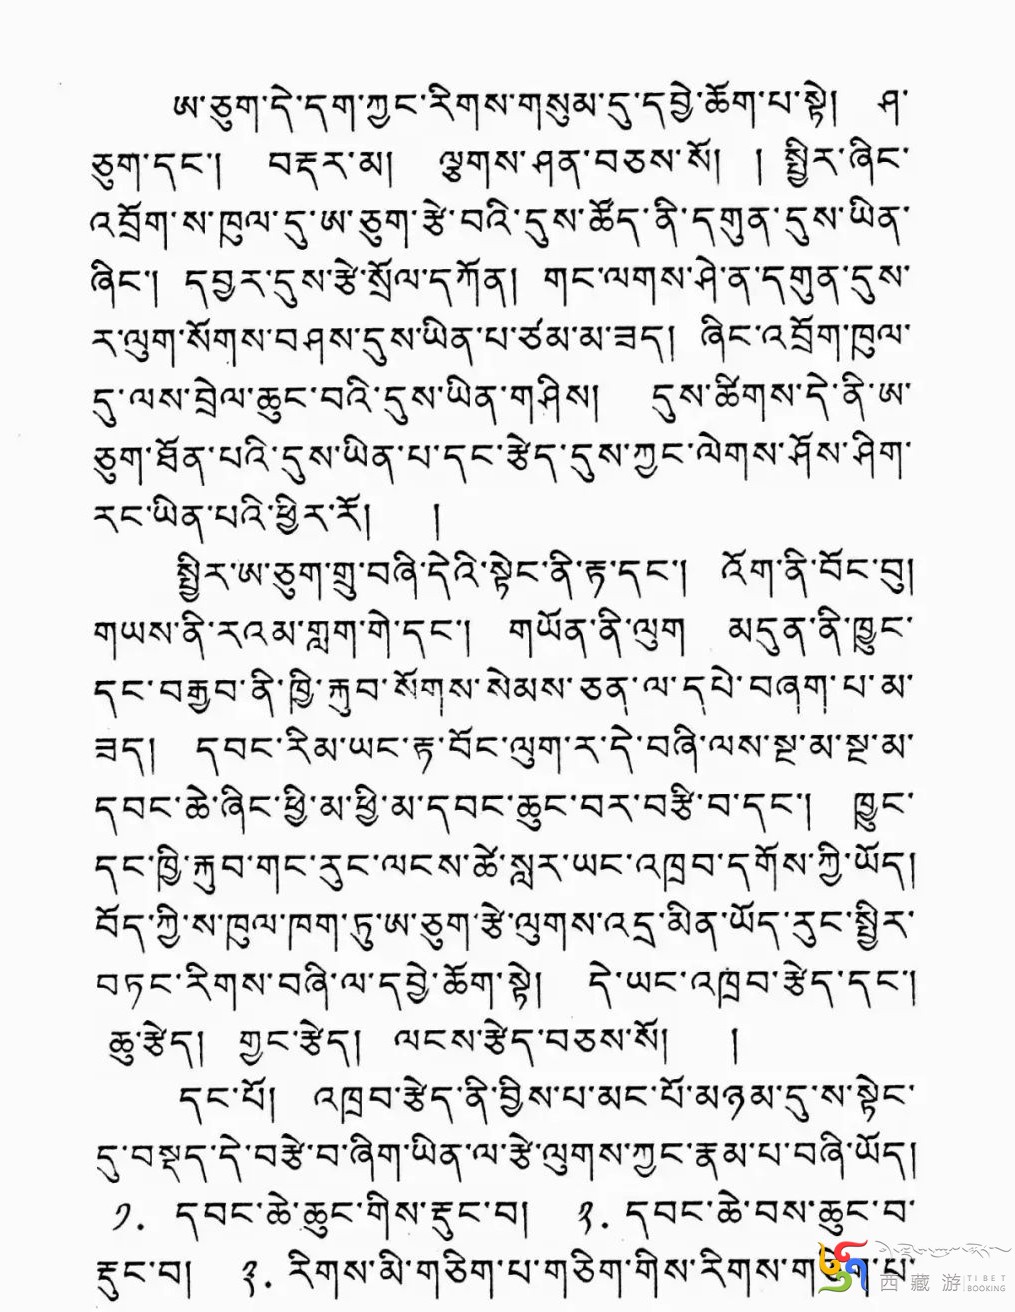 ཨ་ཅུག་དེ་དག་ཀྱང་རིགས་གསུམ་དུ་དབྱེ་ཆོག་པ་སྟེ། ཤ་
ཅུག་དང་། བརྡར་མ། ལྕུགས་ཤན་བཅས་སོ། ། སྤྱིར་ཞིང་
འབྲོག་ས་ཁུལ་དུ་ཨ་ཅུག་རྩེ་བའི་དུས་ཚོད་ནི་དགུན་དུས་ཡིན་
ཞིང་། དབྱར་དུས་རྩེ་སྲོལ་དཀོན། གང་ལགས་ཤེ་ན་དགུན་དུས་
ར་ལུག་སོགས་བཤས་དུས་ཡིན་པ་ཙམ་མ་ཟད། ཞིང་འབྲོག་ཁུལ་
དུ་ལས་བྲེལ་ཆུང་བའི་དུས་ཡིན་གཤིས། དུས་ཚིགས་དེ་ནི་ཨ་
ཅུག་ཐོན་པའི་དུས་ཡིན་པ་དང་རྩེད་དུས་ཀྱང་ལེགས་ཤོས་ཤིག་
རང་ཡིན་པའི་ཕྱིར་རོ། །
སྤྱིར་ཨ་ཅུག་གྲུ་བཞི་དེའི་སྟེང་ནི་རྟ་དང་། འོག་ནི་བོང་བུ།
གཡས་ནི་རའམ་གླག་གེ་དང་། གཡོན་ནི་ལུག མདུན་ནི་ཁྱུང་
དང་བརྒྱབ་ནི་ཁྱི་རྐུབ་སོགས་སེམས་ཅན་ལ་དཔེ་བཞག་པ་མ་
ཟད། དབང་རིམ་ཡང་རྟ་བོང་ལུག་ར་དེ་བཞི་ལས་སྔ་མ་སྔ་མ་
དབང་ཆེ་ཞིང་ཕྱི་མ་ཕྱི་མ་དབང་ཆུང་བར་བརྩི་བ་དང་། ཁྱུང་
དང་ཁྱི་རྐུབ་གང་རུང་ལངས་ཚེ་སླར་ཡང་འཁྲབ་དགོས་ཀྱི་ཡོད།
བོད་ཀྱི་ས་ཁུལ་ཁག་ཏུ་ཨ་ཅུག་རྩེ་ལུགས་འདྲ་མིན་ཡོད་རུང་སྤྱིར་
བཏང་རིགས་བཞི་ལ་དབྱེ་ཆོག་སྟེ། དེ་ཡང་འཁྲབ་རྩེད་དང་།
ཆུ་རྩེད། གྱང་རྩེད། ལངས་རྩེད་བཅས་སོ། །
དང་པོ། འཁྲབ་རྩེད་ནི་བྱིས་པ་མང་པོ་མཉམ་དུ་ས་སྟེང་
དུ་བསྡད་དེ་བརྩེ་བ་ཞིག་ཡིན་ལ་རྩེ་ལུགས་ཀྱང་རྣམ་པ་བཞི་ཡོད།
༡. དབང་ཆེ་ཆུང་གིས་རྡུང་བ། ༢. དབང་ཆེ་བས་ཆུང་བ་
རྡུང་བ། ༣. རིགས་མི་གཅིག་པ་གཅིག་གིས་རིགས་གཅིག་པ་
西藏游 TIBET BOOKING